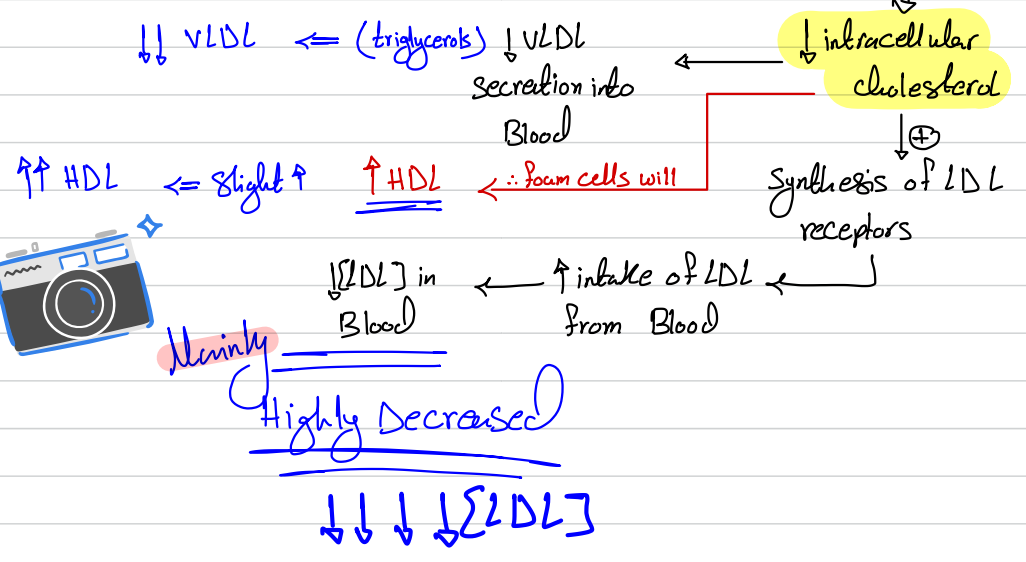 ↓↓ VLDL ⇐ (triglycerols) ↓ VLDL
secretion into
Blood
↓ intracellular
cholesterol
⊕
Synthesis of LDL
receptors
↑↑ HDL ⇐ slight ↑ ↑ HDL ← ∴ foam cells will
↓[LDL] in
Blood
← ↑ intake of LDL
from Blood
Mainly
Highly Decreased
↓↓↓↓[LDL]